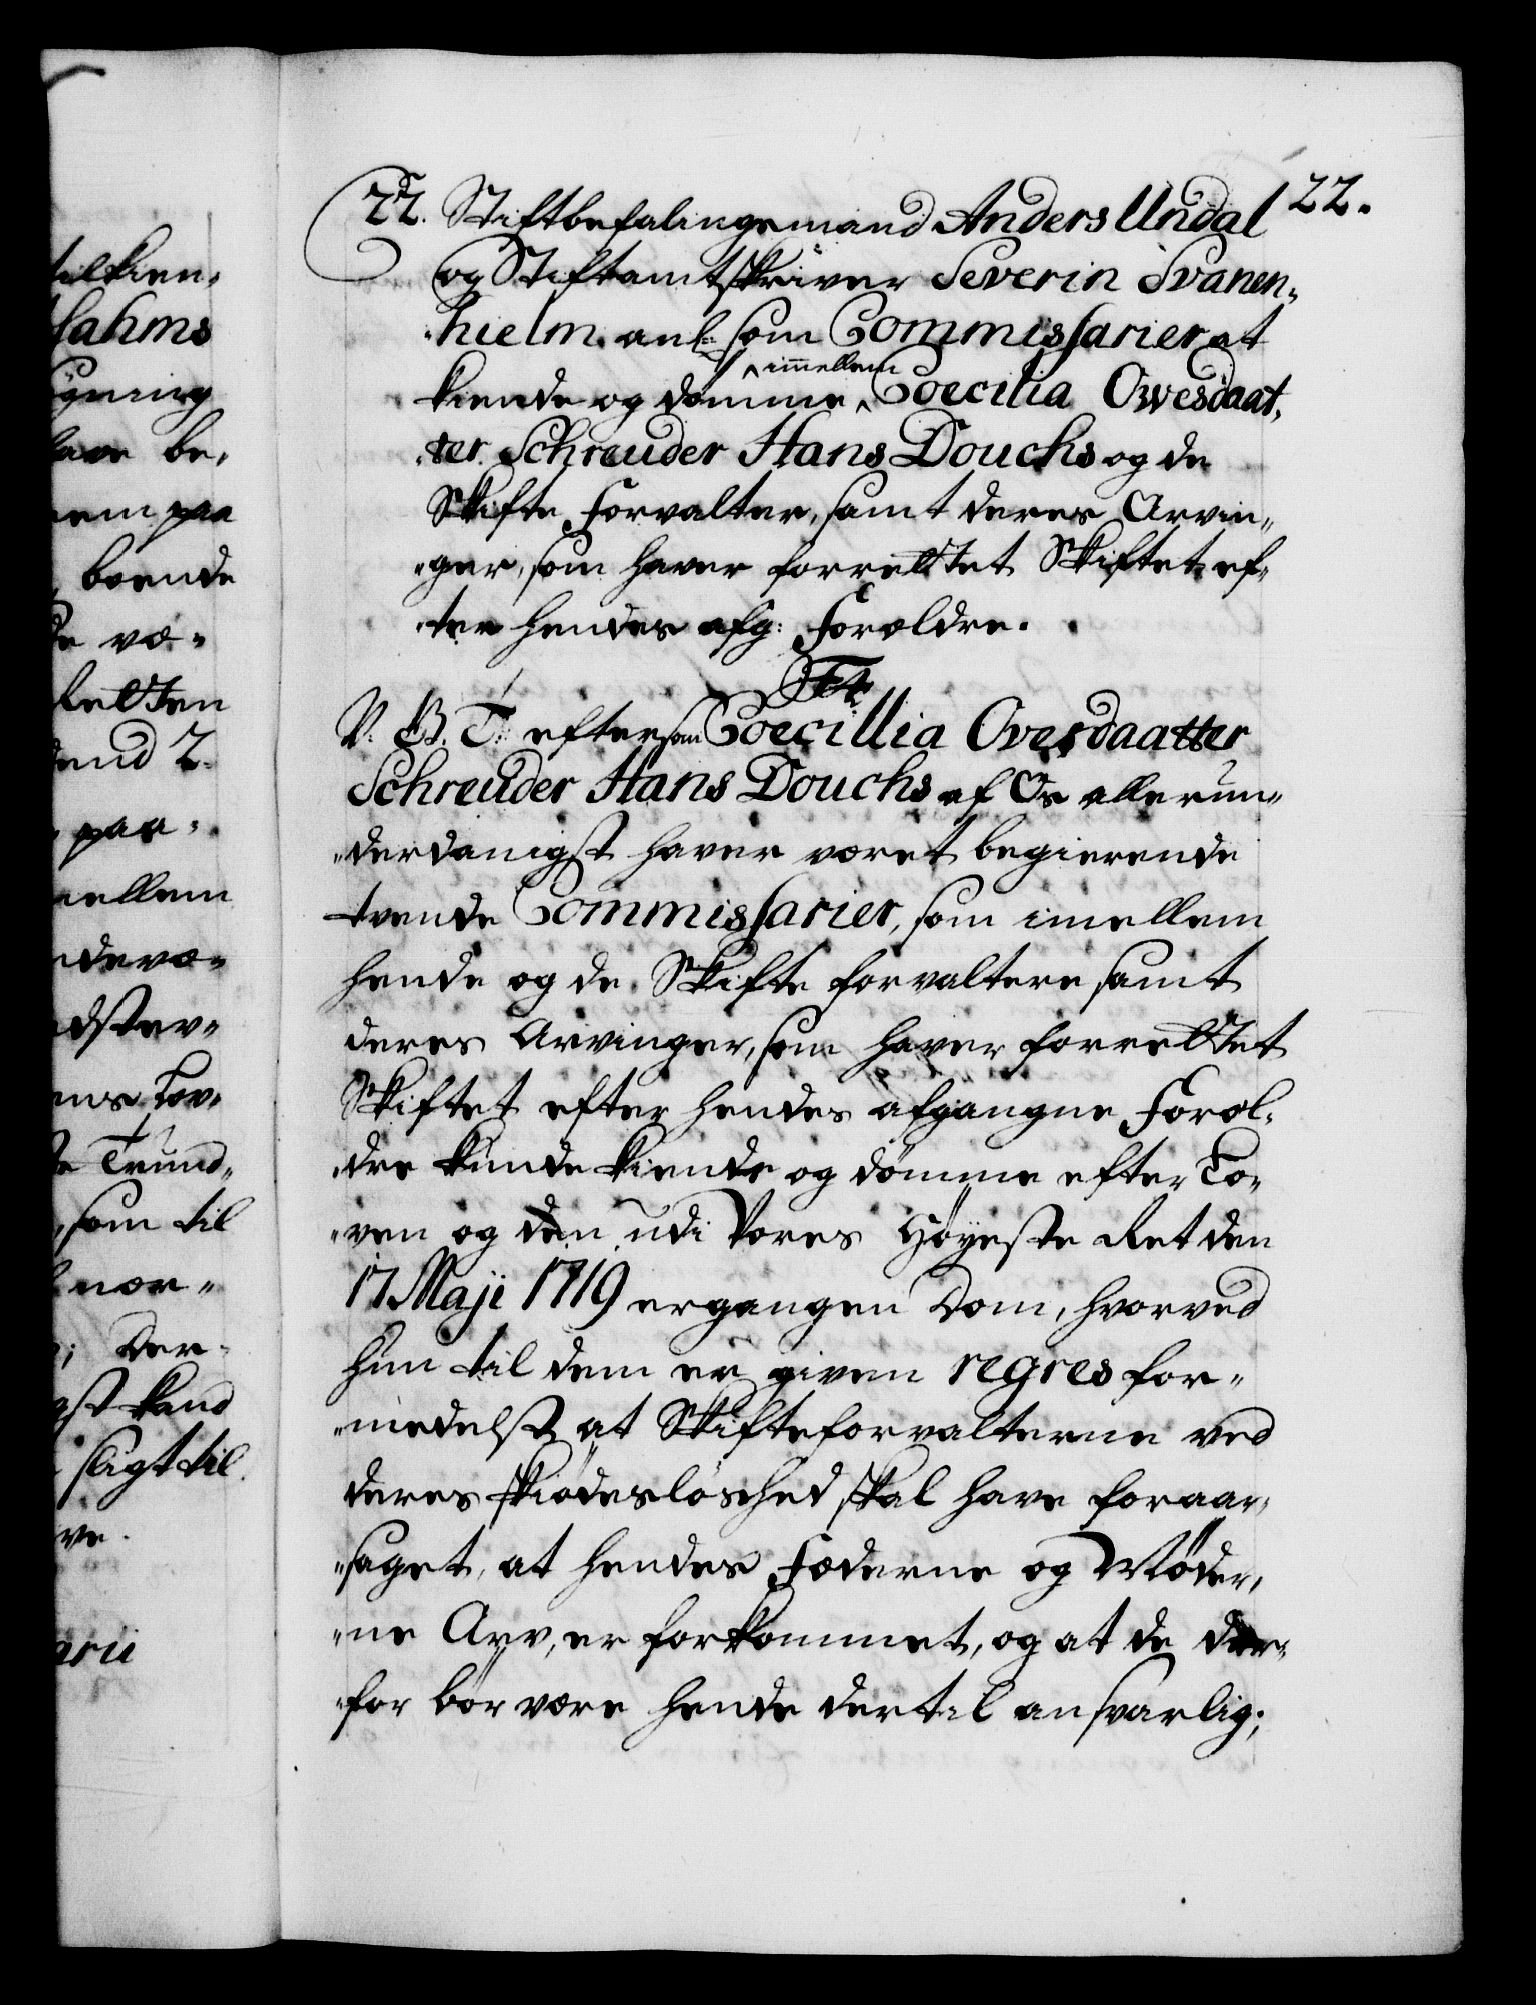 22.
22. Stiftbefalingsmand Anders Undal
og Stiftamtskriver Severin Svanen„
„hielm anl: som Commissarier at
kiende og dømme ^imellem Coecilia Ovvesdaat„
„ter Schreuder Hans Douchs og de
Skifte Forvalter, samt deres Arvin„
„ger, som haver forrettet Skiftet ef„
„ter hendes afg: Forældre.
F4.
V. G. T: eftersom Coecillia Overdaatter
Schreuder Hans Douchs af Os allerun„
„derdanigst haver været begierende
tvende Commissarier, som imellem
hende og de Skifte forvaltere samt
deres Arvinger, som haver forrettet
Skiftet efter hendes afgangne Foræl„
„dre kunde kiende og dømme efter Lo„
„ven og den udi Vores Høyeste Ret den
17 Maji 1719 ergangen Dom, hvorved
hun til dem er given regres for„
„medelst at Skifteforvalterne ved
deres skiødesløshed skal have foraar„
„saget, at hendes Fæderne og Møder„
„ne Arv, er forkommet, og at de der„
„for bør være hende dertil ansvarlig;
tilkien„
Hahms
være be„
dem paa
boende
de væ„
Retten
„ paa„
mellem
Trund„
, som til
nær„
; Der„
gst kand
sligt til
ve.
arii